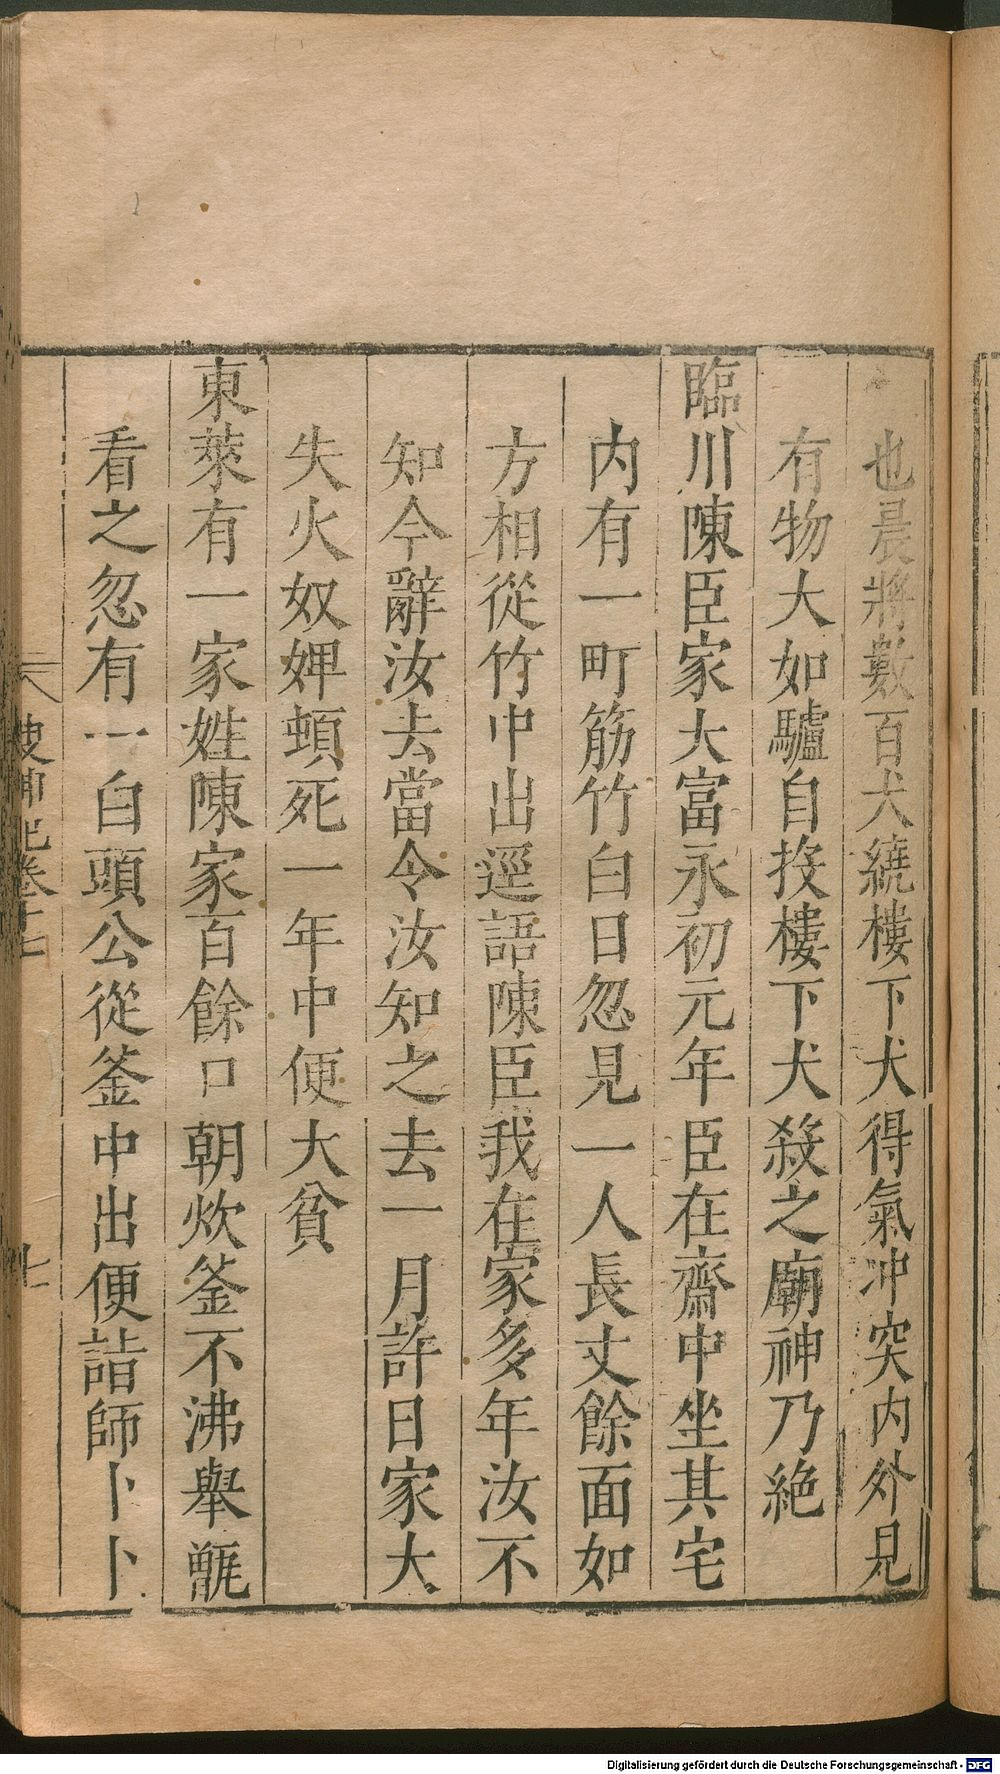 也晨將數百犬繞樓下犬得氣冲突内外見
有物大如驢自投樓下犬殺之廟神乃絶
臨川陳臣家大富永初元年臣在齋中坐其宅
内有一町筋竹白日忽見一人長丈餘面如
方相從竹中出逕語陳臣我在家多年汝不
知今辭汝去當令汝知之去一月許日家大
失火奴婢頓死一年中便大貧
東萊有一家姓陳家百餘口朝炊釜不沸舉甑
看之忽有一白頭公從釜中出便詣師卜卜
搜神記卷十七
七
Digitalisierung gefördert durch die Deutsche Forschungsgemeinschaft - DFG